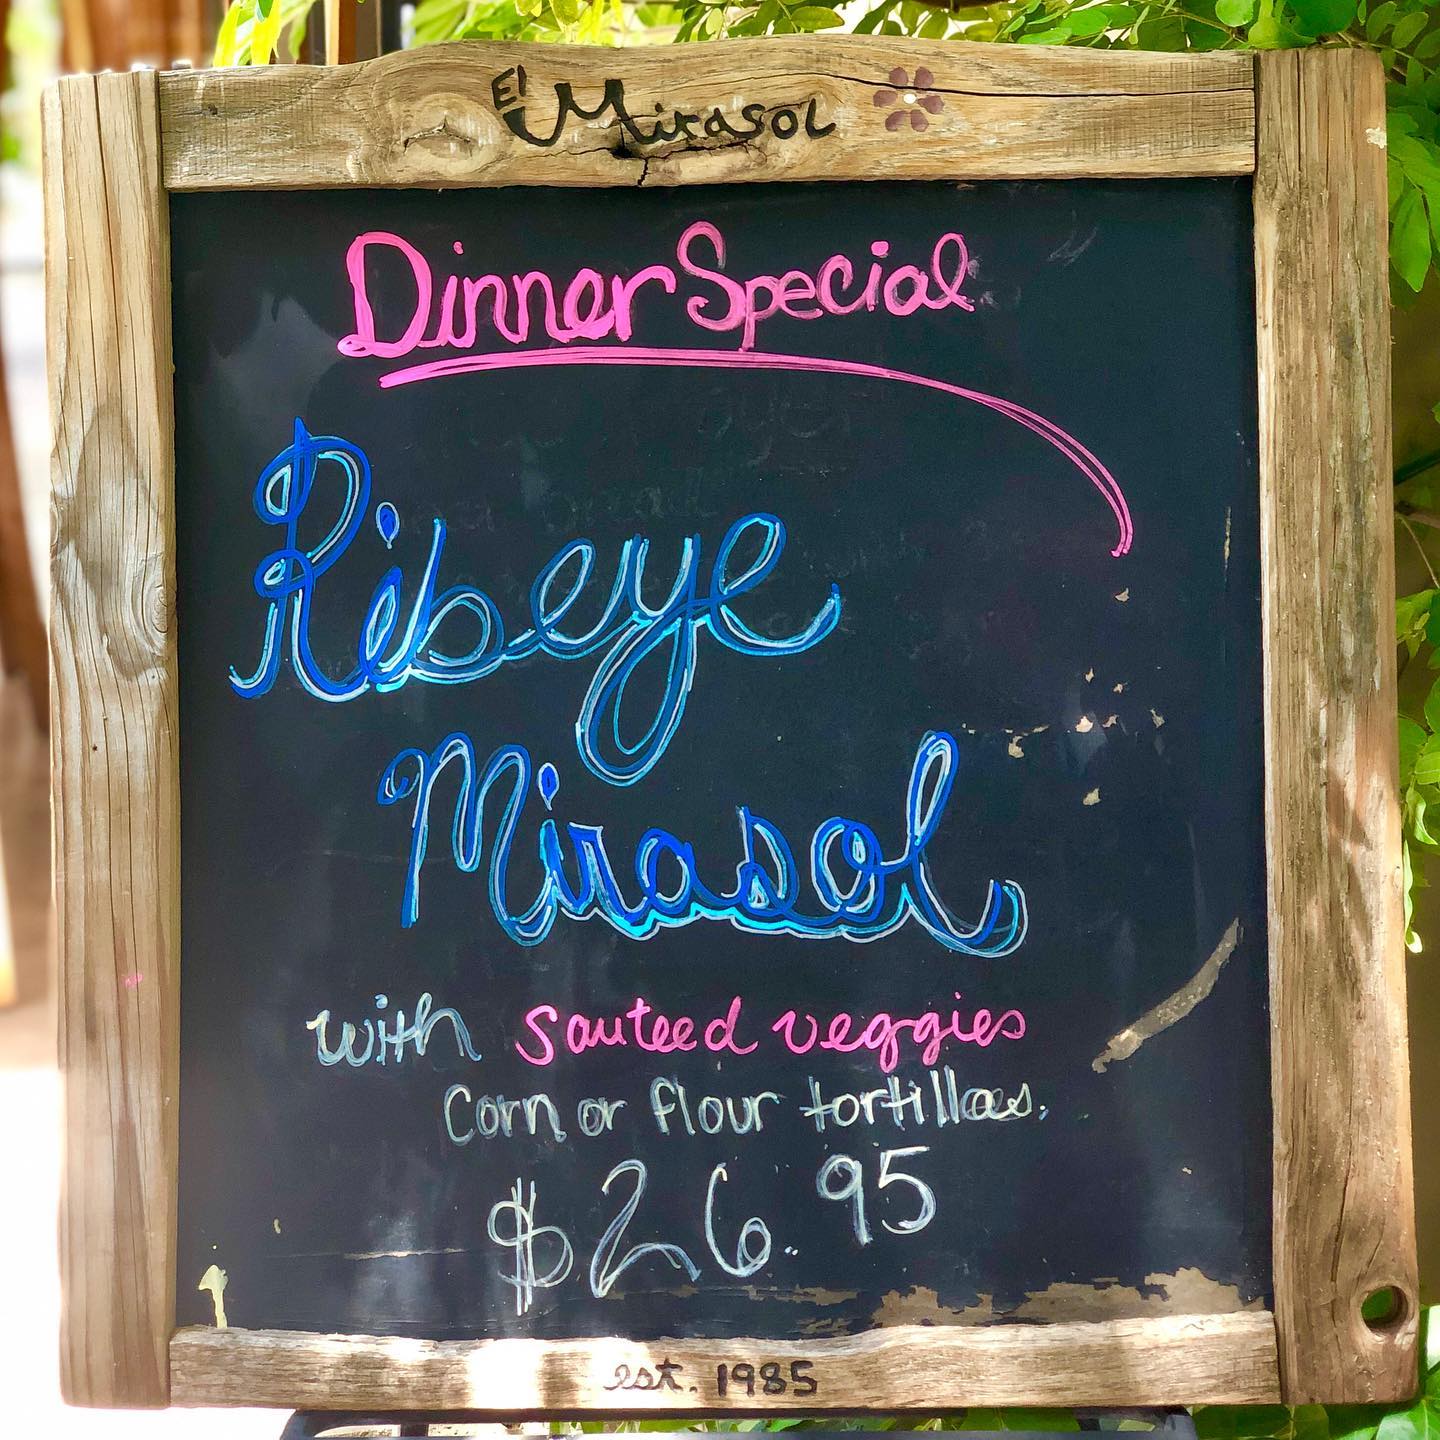 El Mirasol
Dinner Special
Ribeye
Mirasol
with sauteed veggies
Corn or flour tortillas.
$26.95
est. 1985